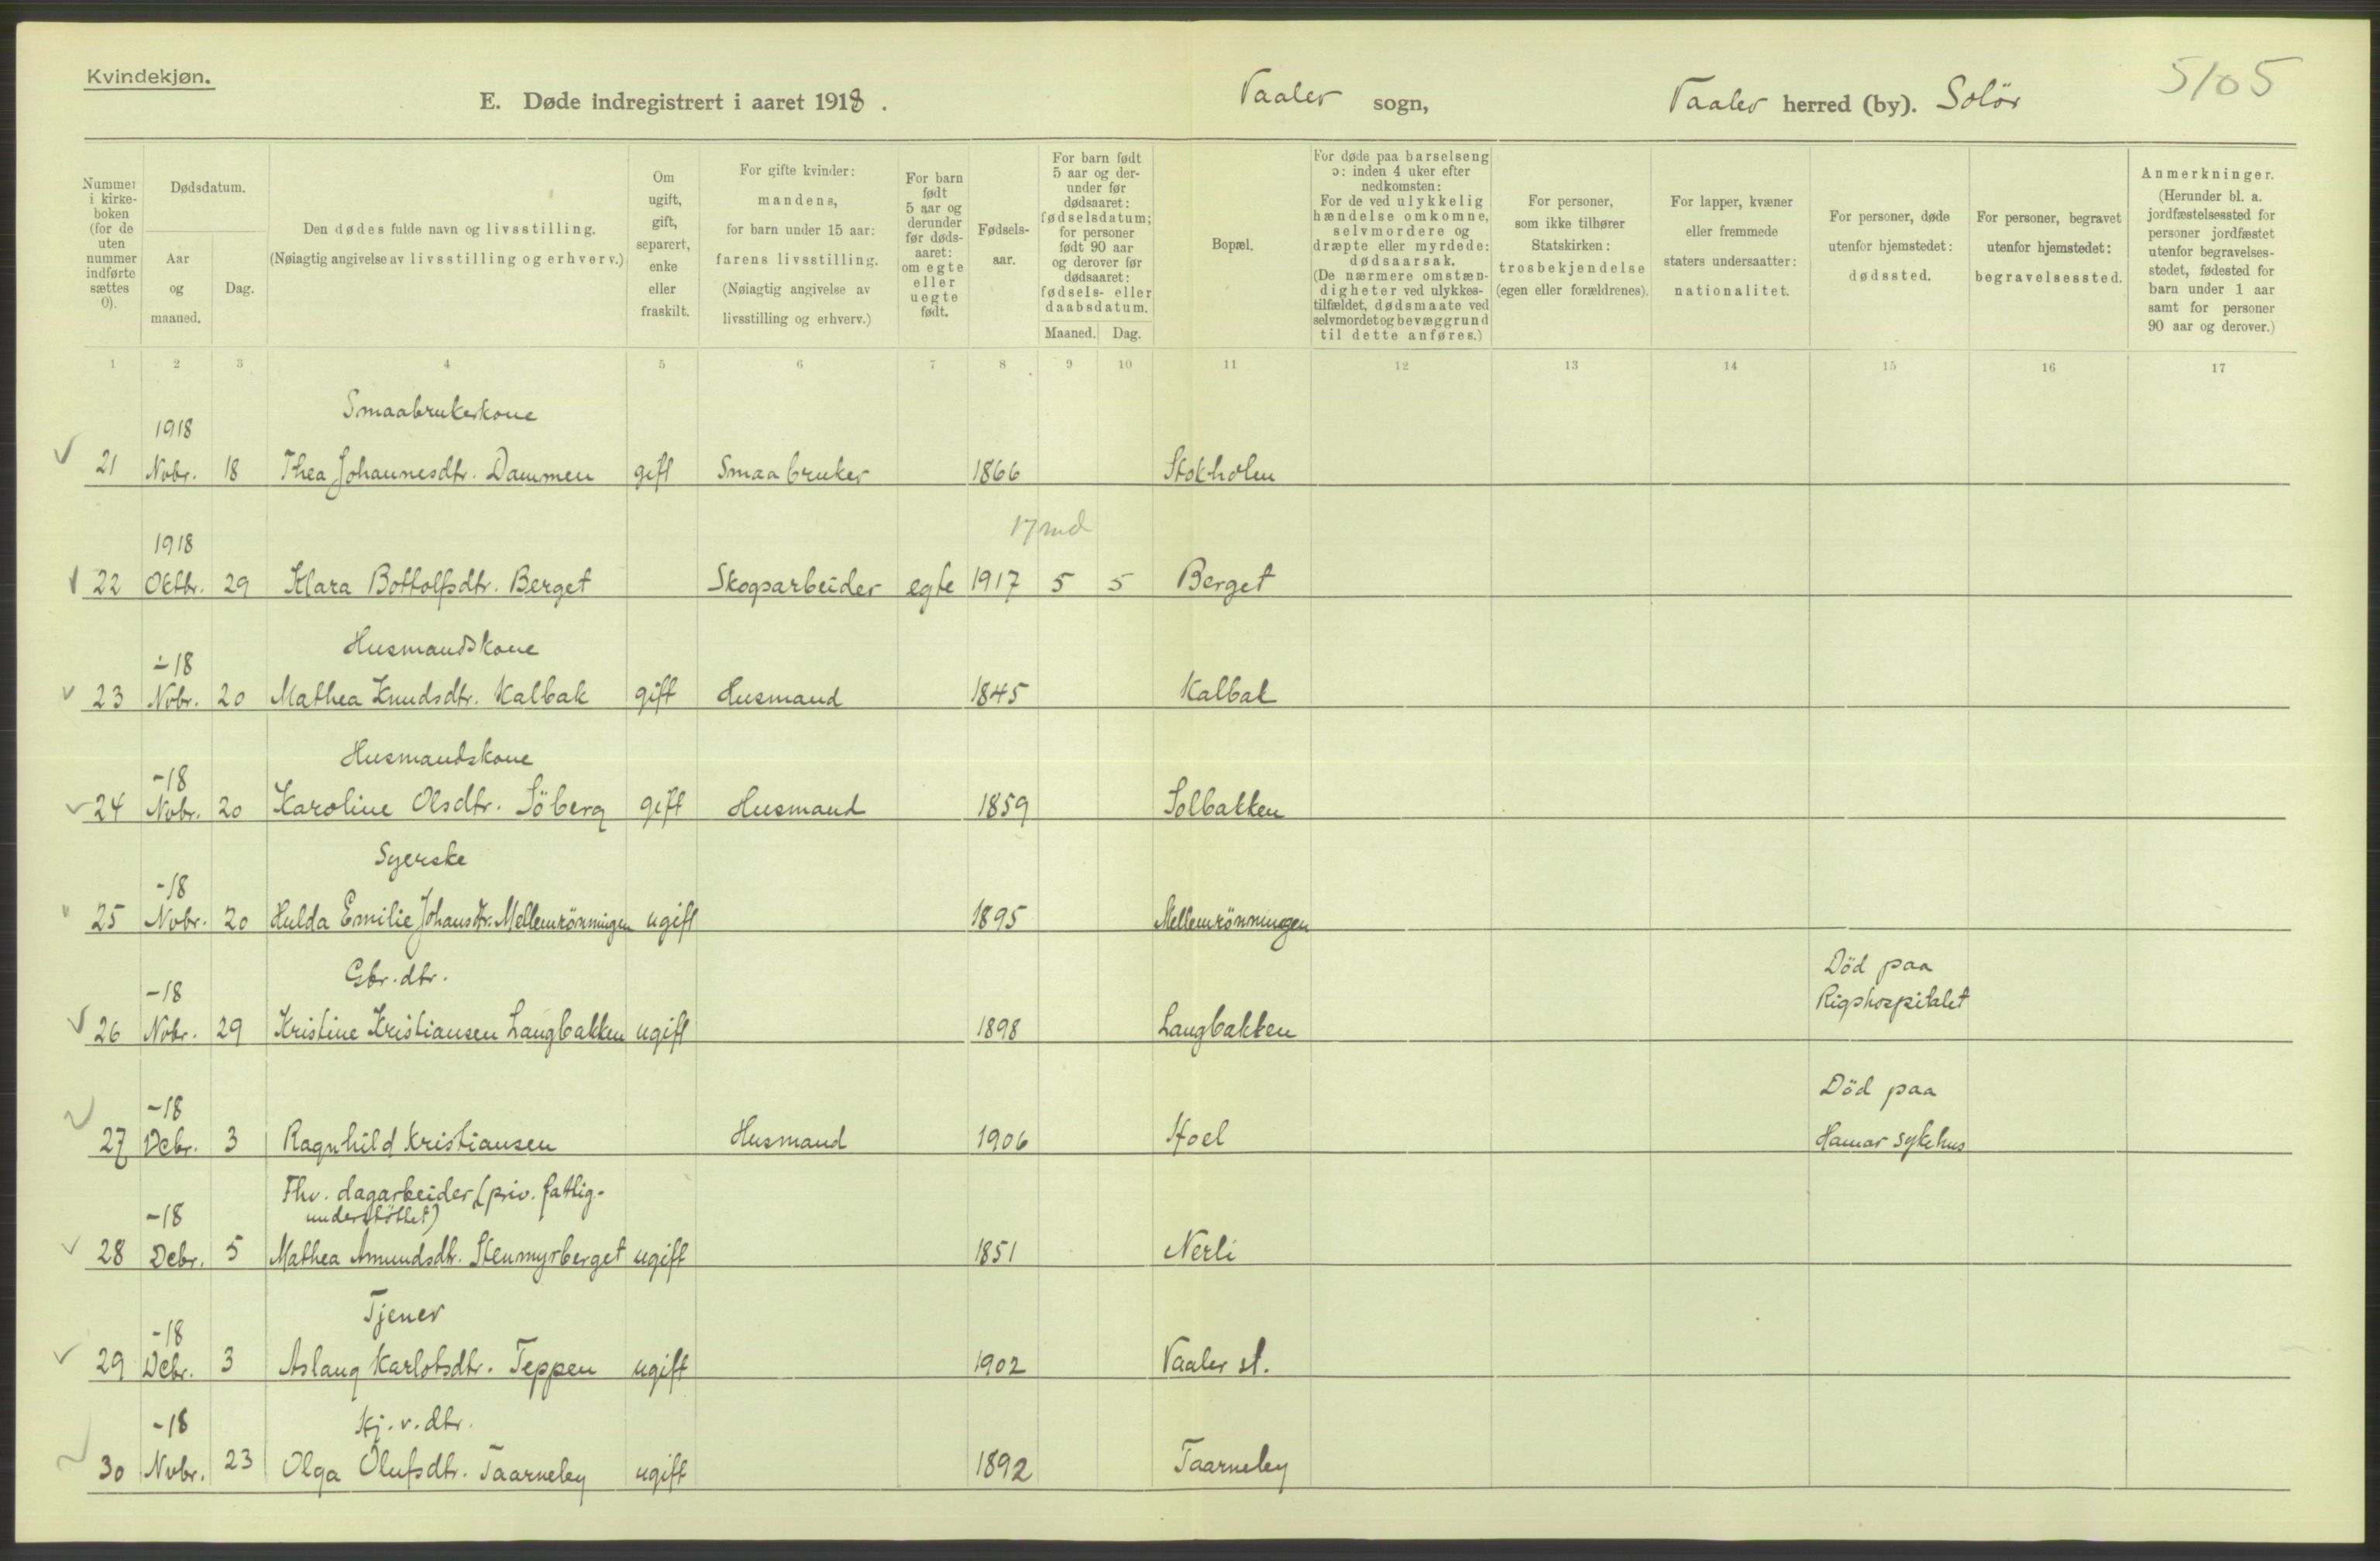 Kvindekjøn.
E. Døde indregistrert i aaret 1918.
Vaaler sogn,
Vaaler herred (by). Solör
5105
Nummer i kirkeboken (for de uten nummer indførte sættes 0).
Dødsdatum.
Aar og maaned.
Dag.
Den dødes fulde navn og livsstilling.
(Nøiagtig angivelse av livsstilling og erhverv.)
Om ugift, gift, separert, enke eller fraskilt.
For gifte kvinder: mandens, for barn under 15 aar: farens livsstilling. (Nøiagtig angivelse av livsstilling og erhverv.)
For barn født 5 aar og derunder før dødsaaret: om egte eller uegte født.
Fødselsaar.
For barn født 5 aar og derunder før dødsaaret: fødselsdatum; for personer født 90 aar og derover før dødsaaret: fødsels- eller daabsdatum.
Maaned. Dag.
Bopæl.
For døde paa barselseng ɔ: inden 4 uker efter nedkomsten: For de ved ulykkelig hændelse omkomne, selvmordere og dræpte eller myrdede: dødsaarsak. (De nærmere omstændigheter ved ulykkestilfældet, dødsmaate ved selvmordet og bevæggrund til dette anføres.)
For personer, som ikke tilhører Statskirken: trosbekjendelse (egen eller forældrenes).
For lapper, kvæner eller fremmede staters undersaatter: nationalitet.
For personer, døde utenfor hjemstedet: dødssted.
For personer, begravet utenfor hjemstedet: begravelsessted.
Anmerkninger. (Herunder bl. a. jordfæstelsessted for personer jordfæstet utenfor begravelsesstedet, fødested for barn under 1 aar samt for personer 90 aar og derover.)
1 2 3 4 5 6 7 8 9 10 11 12 13 14 15 16 17
Smaabrukerkone
1918
21 Nobr. 18 Thea Johannesdtr. Dammen gift Smaabruker 1866 Stokholen
17 md
1918
22 Oktbr. 29 Klara Bottolfsdtr. Berget Skogsarbeider egte 1917 5 5 Berget
Husmandskone
-18
23 Nobr. 20 Mathea Knudsdtr. Kalbak gift Husmand 1845 Kalbak
Husmandskone
-18
24 Nobr. 20 Karoline Olsdtr. Söberg gift Husmand 1859 Solbakken
Syerske
-18
25 Nobr. 20 Hulda Emilie Johansdtr. Mellemrönningen ugift 1895 Mellemrönningen
Gbr. dtr. Död paa
-18 Rigshospitalet
26 Nobr. 29 Kristine Kristiansen Langbakken ugift 1898 Langbakken
-18 Död paa
27 Debr. 3 Ragnhild Kristiansen Husmand 1906 Hoel Hamar sykehus
Fhv. dagarbeider (priv. fattig-
-18 understöttet)
28 Debr. 5 Mathea Amundsdtr. Stenmyrberget ugift 1851 Nerli
Tjener
-18
29 Debr. 3 Aslaug Karlotsdtr. Teppen ugift 1902 Vaaler st.
-18 Kj. v. dtr.
30 Nobr. 23 Olga Olufsdtr. Taarneby ugift 1892 Taarneby